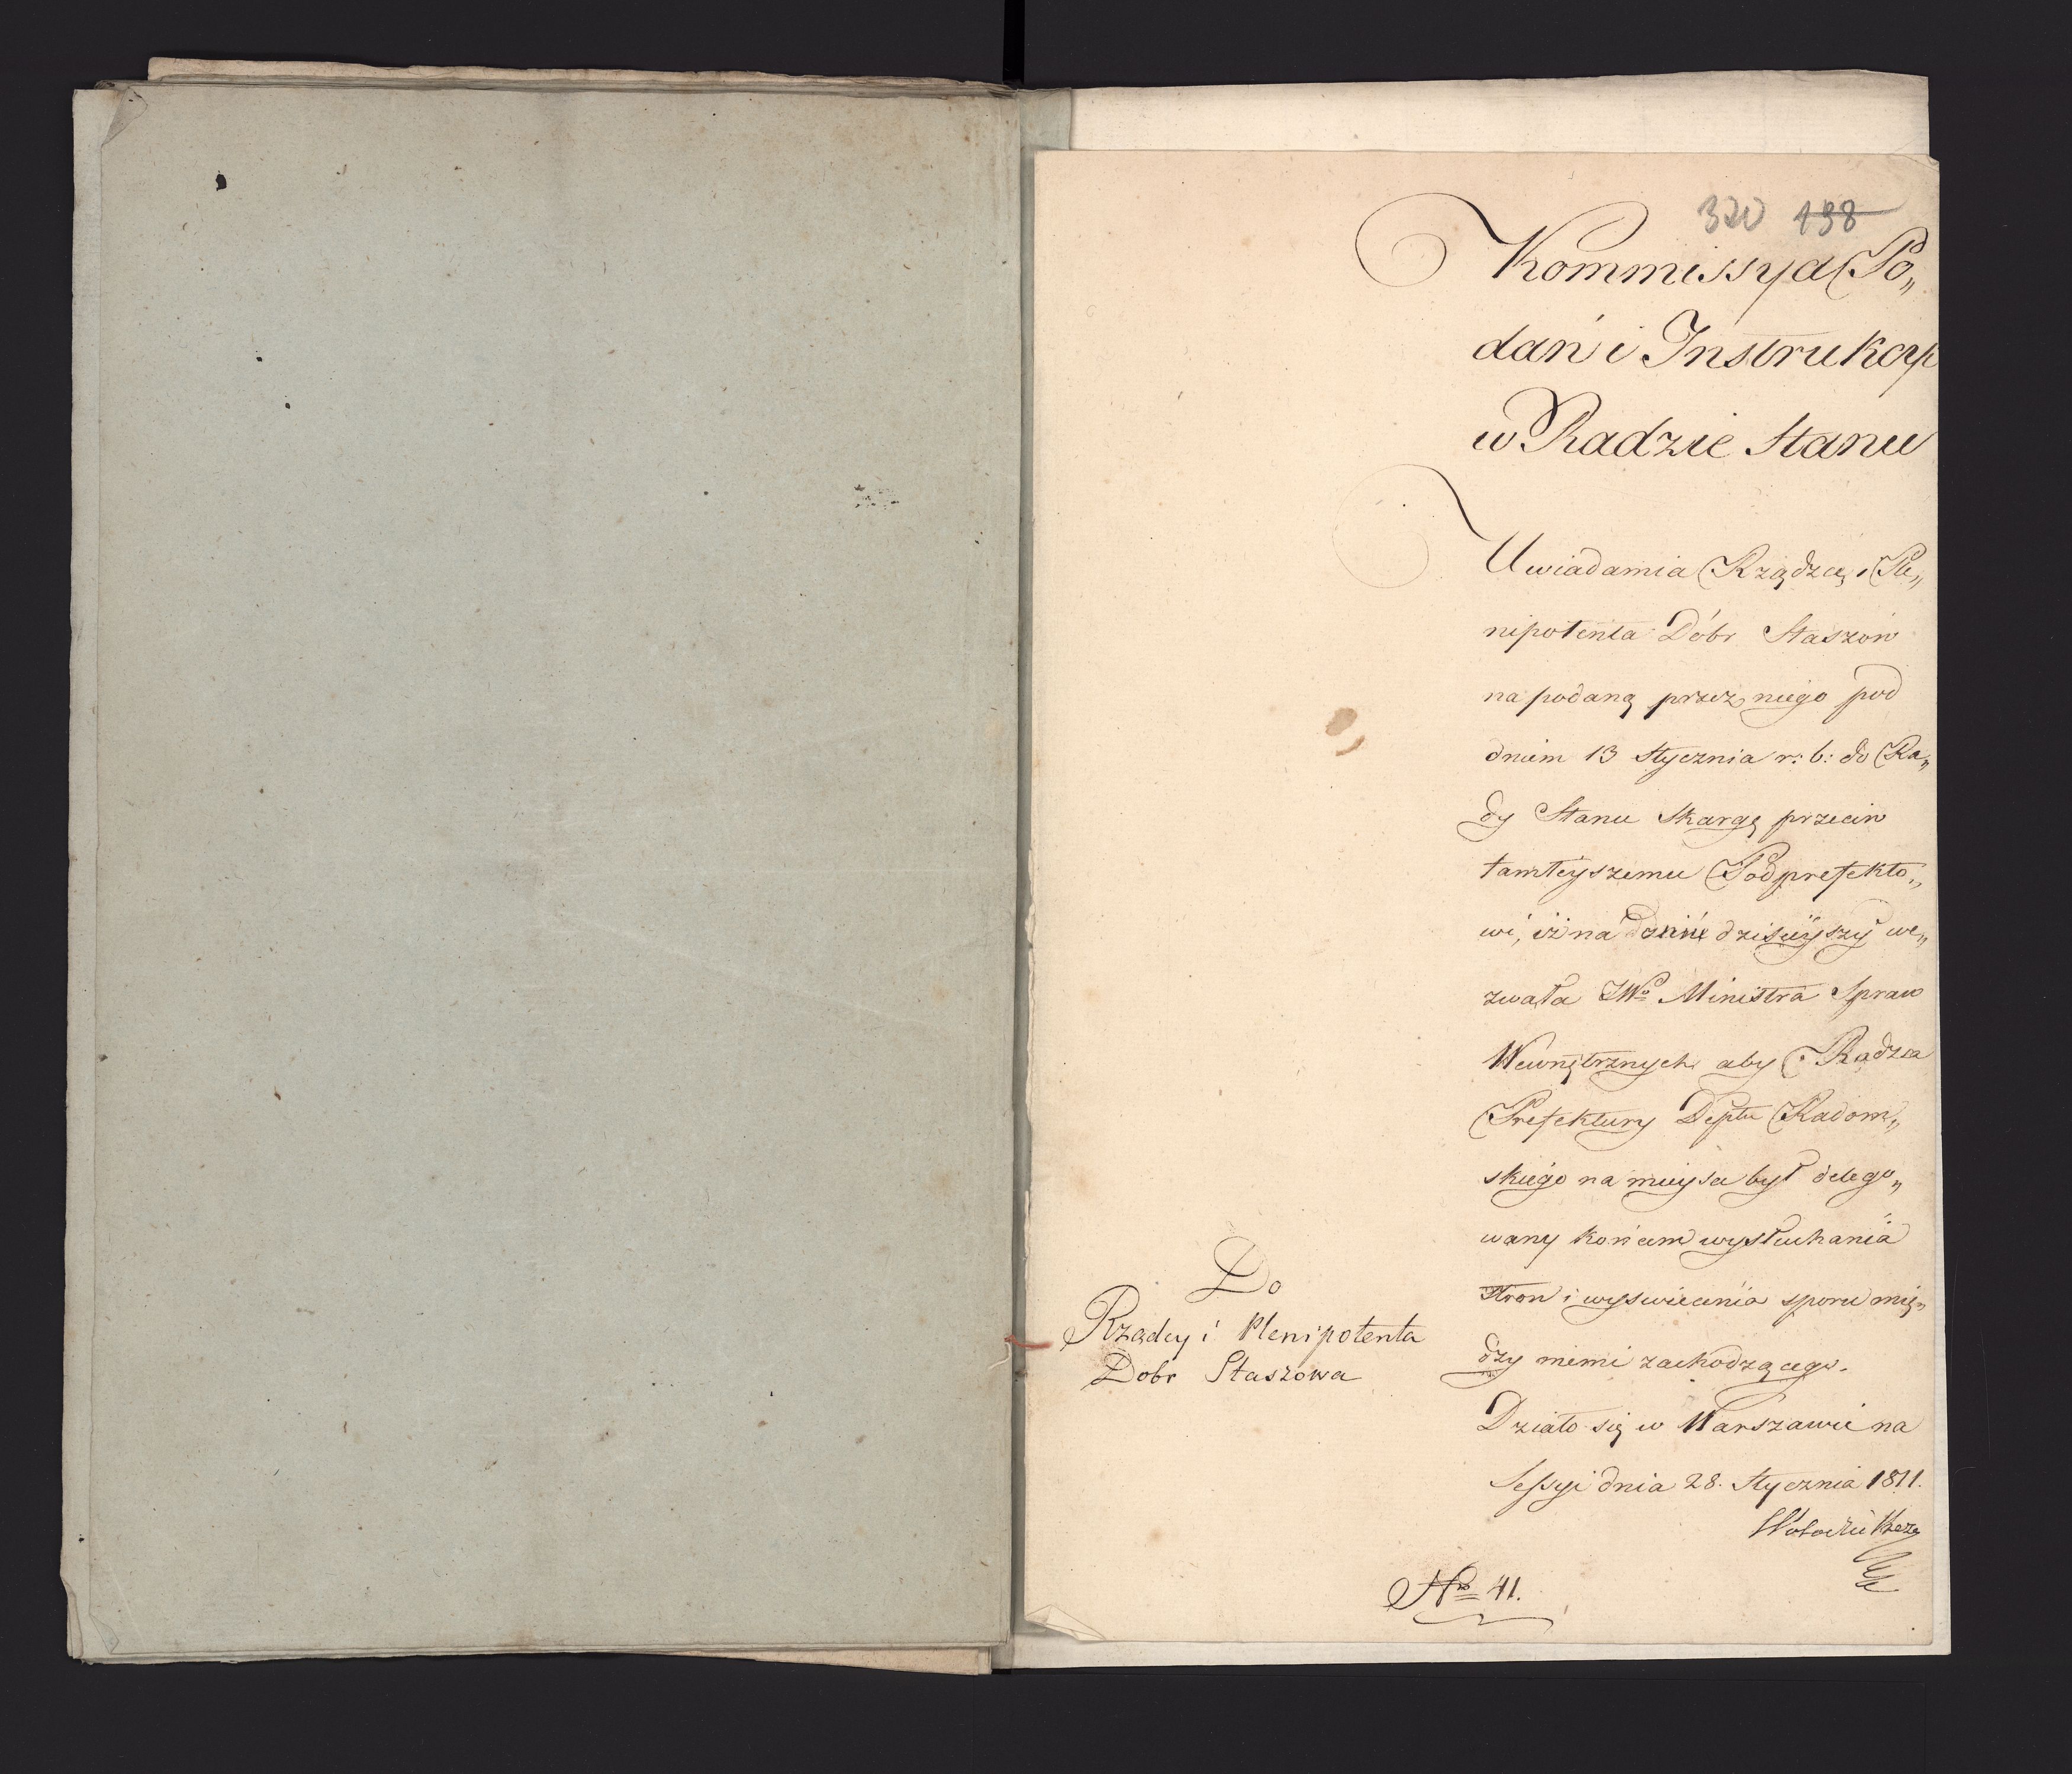 320 438
Kommissya Po„
dań i Instrukcyi
w Radzie Stanu
Uwiadamia Rządzcę i Ple„
nipotenta Dóbr Staszow
na podaną przez niego pod
dniem 13 Stycznia r: b: do Ra„
dy Stanu Skargę przeciw
tamteyszemu Podprefekto„
wi, iż na dniu dzisieyszy we„
zwała JWo Ministra Spraw
Wewnętrznych aby Radzca
Prefektury Deptu Radom„
skiego na mieysce był delego„
wany końcem wysłuchania
Stron i wyswiecenia sporu mię„
dzy niemi zachodzącego.
Działo się w Warszawie na
Sessyi dnia 28. Stycznia 1811.
Do
Rządcy i Plenipotenta
Dobr Staszowa
No 41.